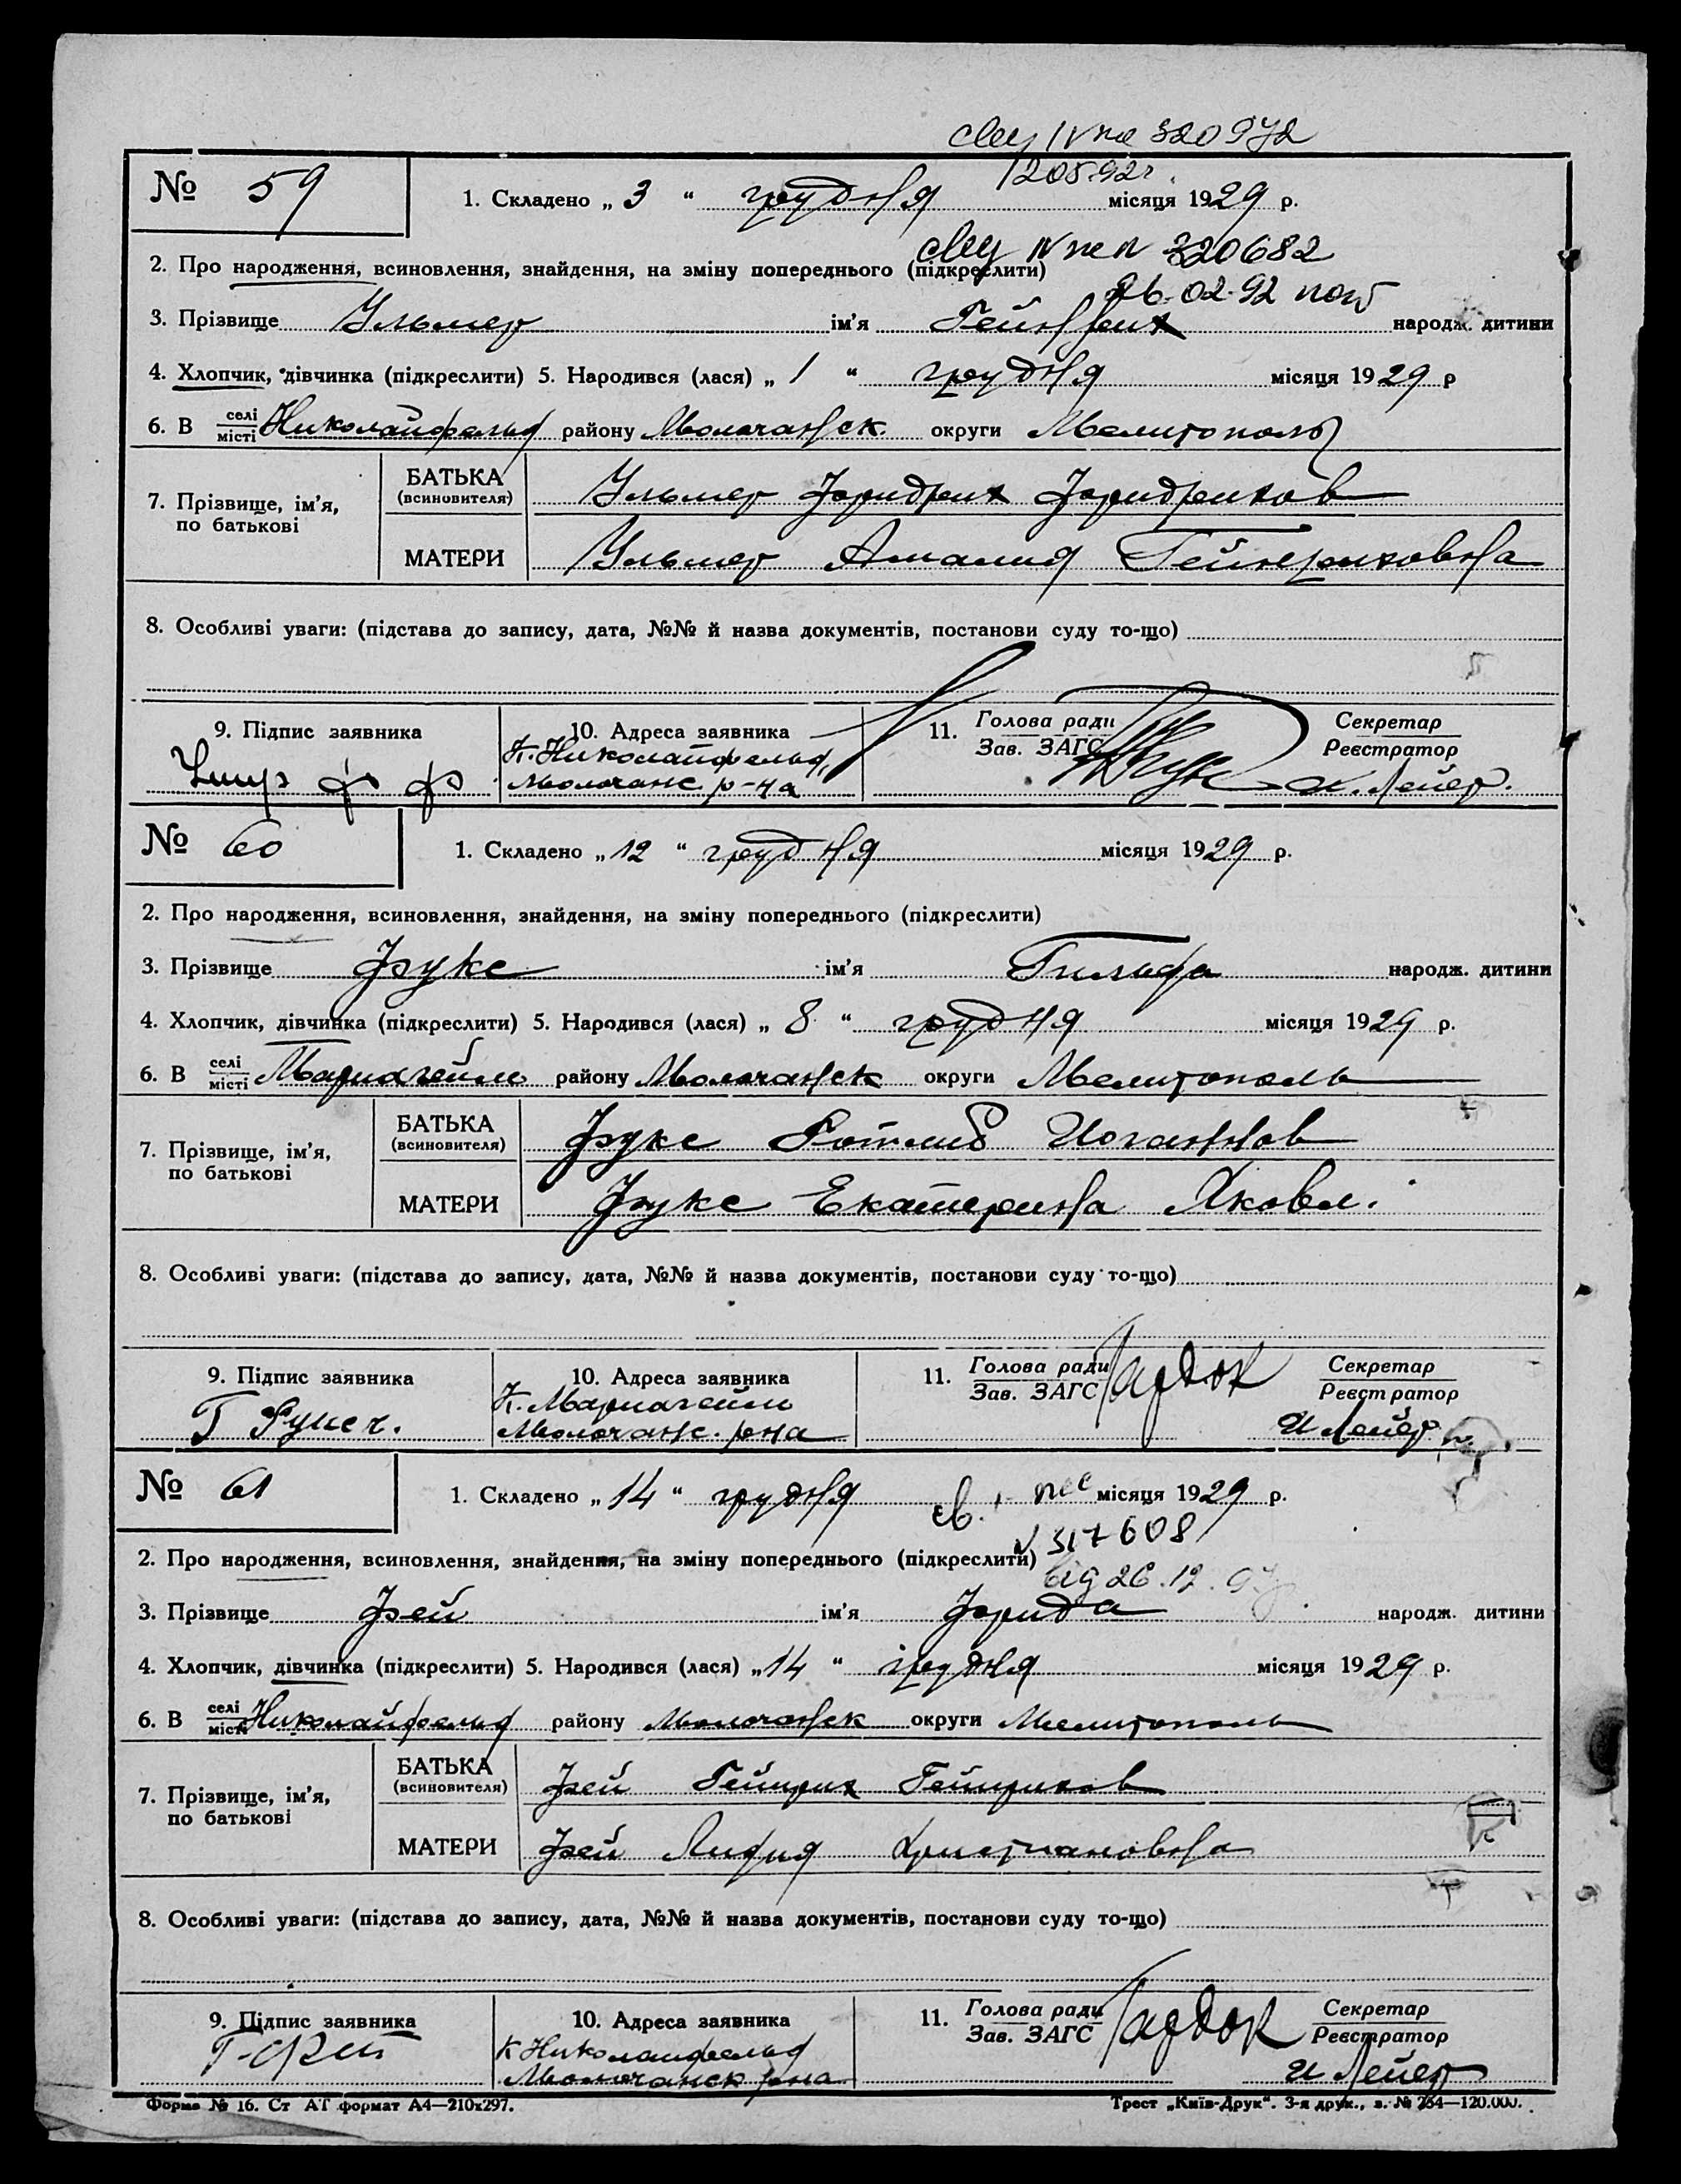 320972
12.05.92г.
№ 59
1. Складено „ 3 “ грудня місяця 1929 р.
320682
2. Про народження, всиновлення, знайдення, на зміну попереднього (підкреслити)
26.02.92
3. Прізвище Ульмер ім’я Гейнрих народж. дитини
4. Хлопчик, дівчинка (підкреслити) 5. Народився (лася) „ 1 “ грудня місяця 1929 р
6. В селі місті Николайфельд району Молочанск. округи Мелитополь
7. Прізвище, ім’я, по батькові
БАТЬКА (всиновителя) Ульмер Фридрих Фридрихов
МАТЕРИ Ульмер Амалия Гейнриховна
8. Особливі уваги: (підстава до запису, дата, №№ й назва документів, постанови суду то-що)
9. Підпис заявника
10. Адреса заявника К. Николайфельд, Молочанс р-на
11. Голова ради Зав. ЗАГС
Секретар Реєстратор Лейер.
№ 60
1. Складено „ 12 “ грудня місяця 1929 р.
2. Про народження, всиновлення, знайдення, на зміну попереднього (підкреслити)
3. Прізвище Фукс ім’я Гильда народж. дитини
4. Хлопчик, дівчинка (підкреслити) 5. Народився (лася) „ 8 “ грудня місяця 1929 р.
6. В селі місті Мариагейм району Молочанск округи Мелитополь
7. Прізвище, ім’я, по батькові
БАТЬКА (всиновителя) Фукс Готлиб Иоганнов
МАТЕРИ Фукс Екатерина Яковл.
8. Особливі уваги: (підстава до запису, дата, №№ й назва документів, постанови суду то-що)
9. Підпис заявника
10. Адреса заявника К. Мариагейм Молочанс. р-на
11. Голова ради Зав. ЗАГС
Секретар Реєстратор И Лейер
№ 61
1. Складено „ 14 “ грудня місяця 1929 р.
317608
2. Про народження, всиновлення, знайдення, на зміну попереднього (підкреслити)
від 26.12.
3. Прізвище Фей ім’я Фрида народж. дитини
4. Хлопчик, дівчинка (підкреслити) 5. Народився (лася) „ 14 “ грудня місяця 1929 р.
6. В селі місті Николайфельд району Молочанск округи Мелитополь
7. Прізвище, ім’я, по батькові
БАТЬКА (всиновителя) Фей Гейнрих Гейнрихов
МАТЕРИ Фей Лидия Христиановна
8. Особливі уваги: (підстава до запису, дата, №№ й назва документів, постанови суду то-що)
9. Підпис заявника
10. Адреса заявника К Николайфельд Молочанск р-на
11. Голова ради Зав. ЗАГС
Секретар Реєстратор И Лейер
Форма № 16. Ст АТ формат А4—210х297.
Трест „Київ-Друк“. 3-я друк., з. № 254—120.000.